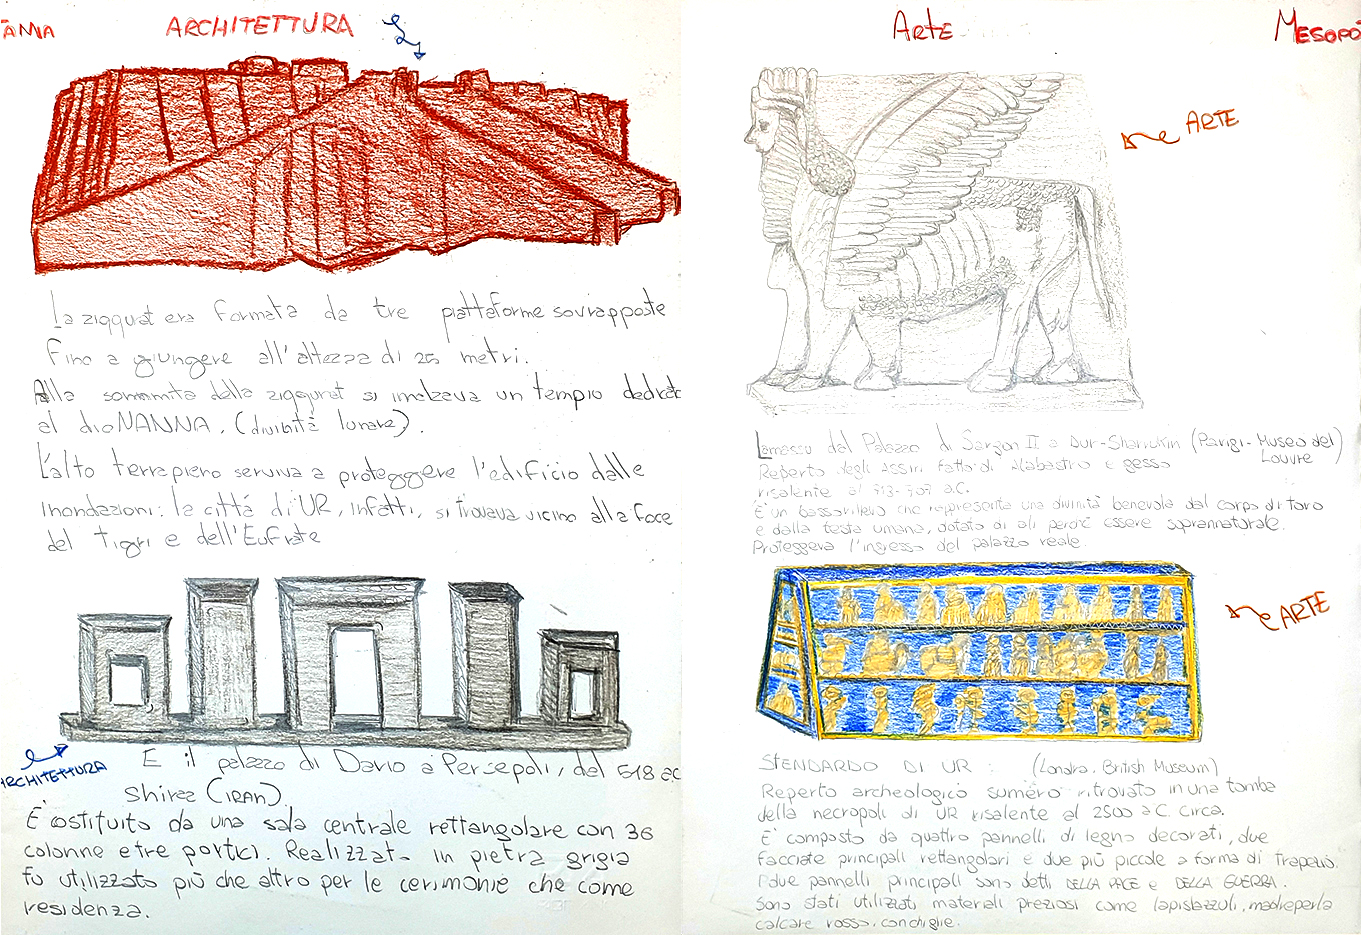 TAMIA
ARCHITETTURA
La ziqqurat era formata da tre piattaforme sovrapposte
fino a giungere all'altezza di 25 metri.
Alla sommità della ziqqurat si inalzava un tempio dedicat
al dio NANNA. (divinità lunare).
L'alto terrapieno serviva a proteggere l'edificio dalle
inondazioni: la città di UR, infatti, si trovava vicino alla foce
del Tigri e dell'Eufrate
ARCHITETTURA
E il palazzo di Dario a Persepoli, del 518 ac
Shiraz (IRAN)
E' costituito da una sala centrale rettangolare con 36
colonne e tre portici. Realizzato in pietra grigia
fu utilizzato più che altro per le cerimonie che come
residenza.
Arte
MESOPO
ARTE
Lamassu dal Palazzo di Sargon II a Dur-Sharrukin (Parigi-Museo del
Louvre)
Reperto degli Assiri fatto di Alabastro e gesso
risalente al 713-707 a.C.
E' un bassorilievo che rappresenta una divinità benevola dal corpo di toro
e dalla testa umana, dotato di ali perché essere soprannaturale.
Proteggeva l'ingresso del palazzo reale.
ARTE
STENDARDO DI UR : (Londra. British Museum)
Reperto archeologico sumero ritrovato in una tomba
della necropoli di UR risalente al 2500 a.C. circa.
E' composto da quattro pannelli di legno decorati, due
facciate principali rettangolari e due più piccole a forma di trapezio.
I due pannelli principali sono detti DELLA PACE e DELLA GUERRA.
Sono stati utilizzati materiali preziosi come lapislazzuli, madreperla
calcare rosso, conchiglie.